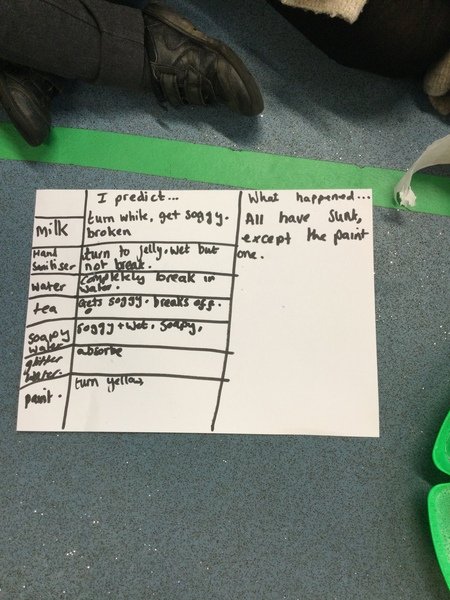 I predict...
What happened...
milk
turn while, get soggy.
broken
All have sunk,
except the paint
one.
Hand
Sanitiser
turn to jelly. Wet but
not break.
water
Completely break in
water.
tea
Gets soggy. breaks off.
soapy
water
soggy + wet. Soapy.
glitter
water.
absorbe
paint.
turn yellow